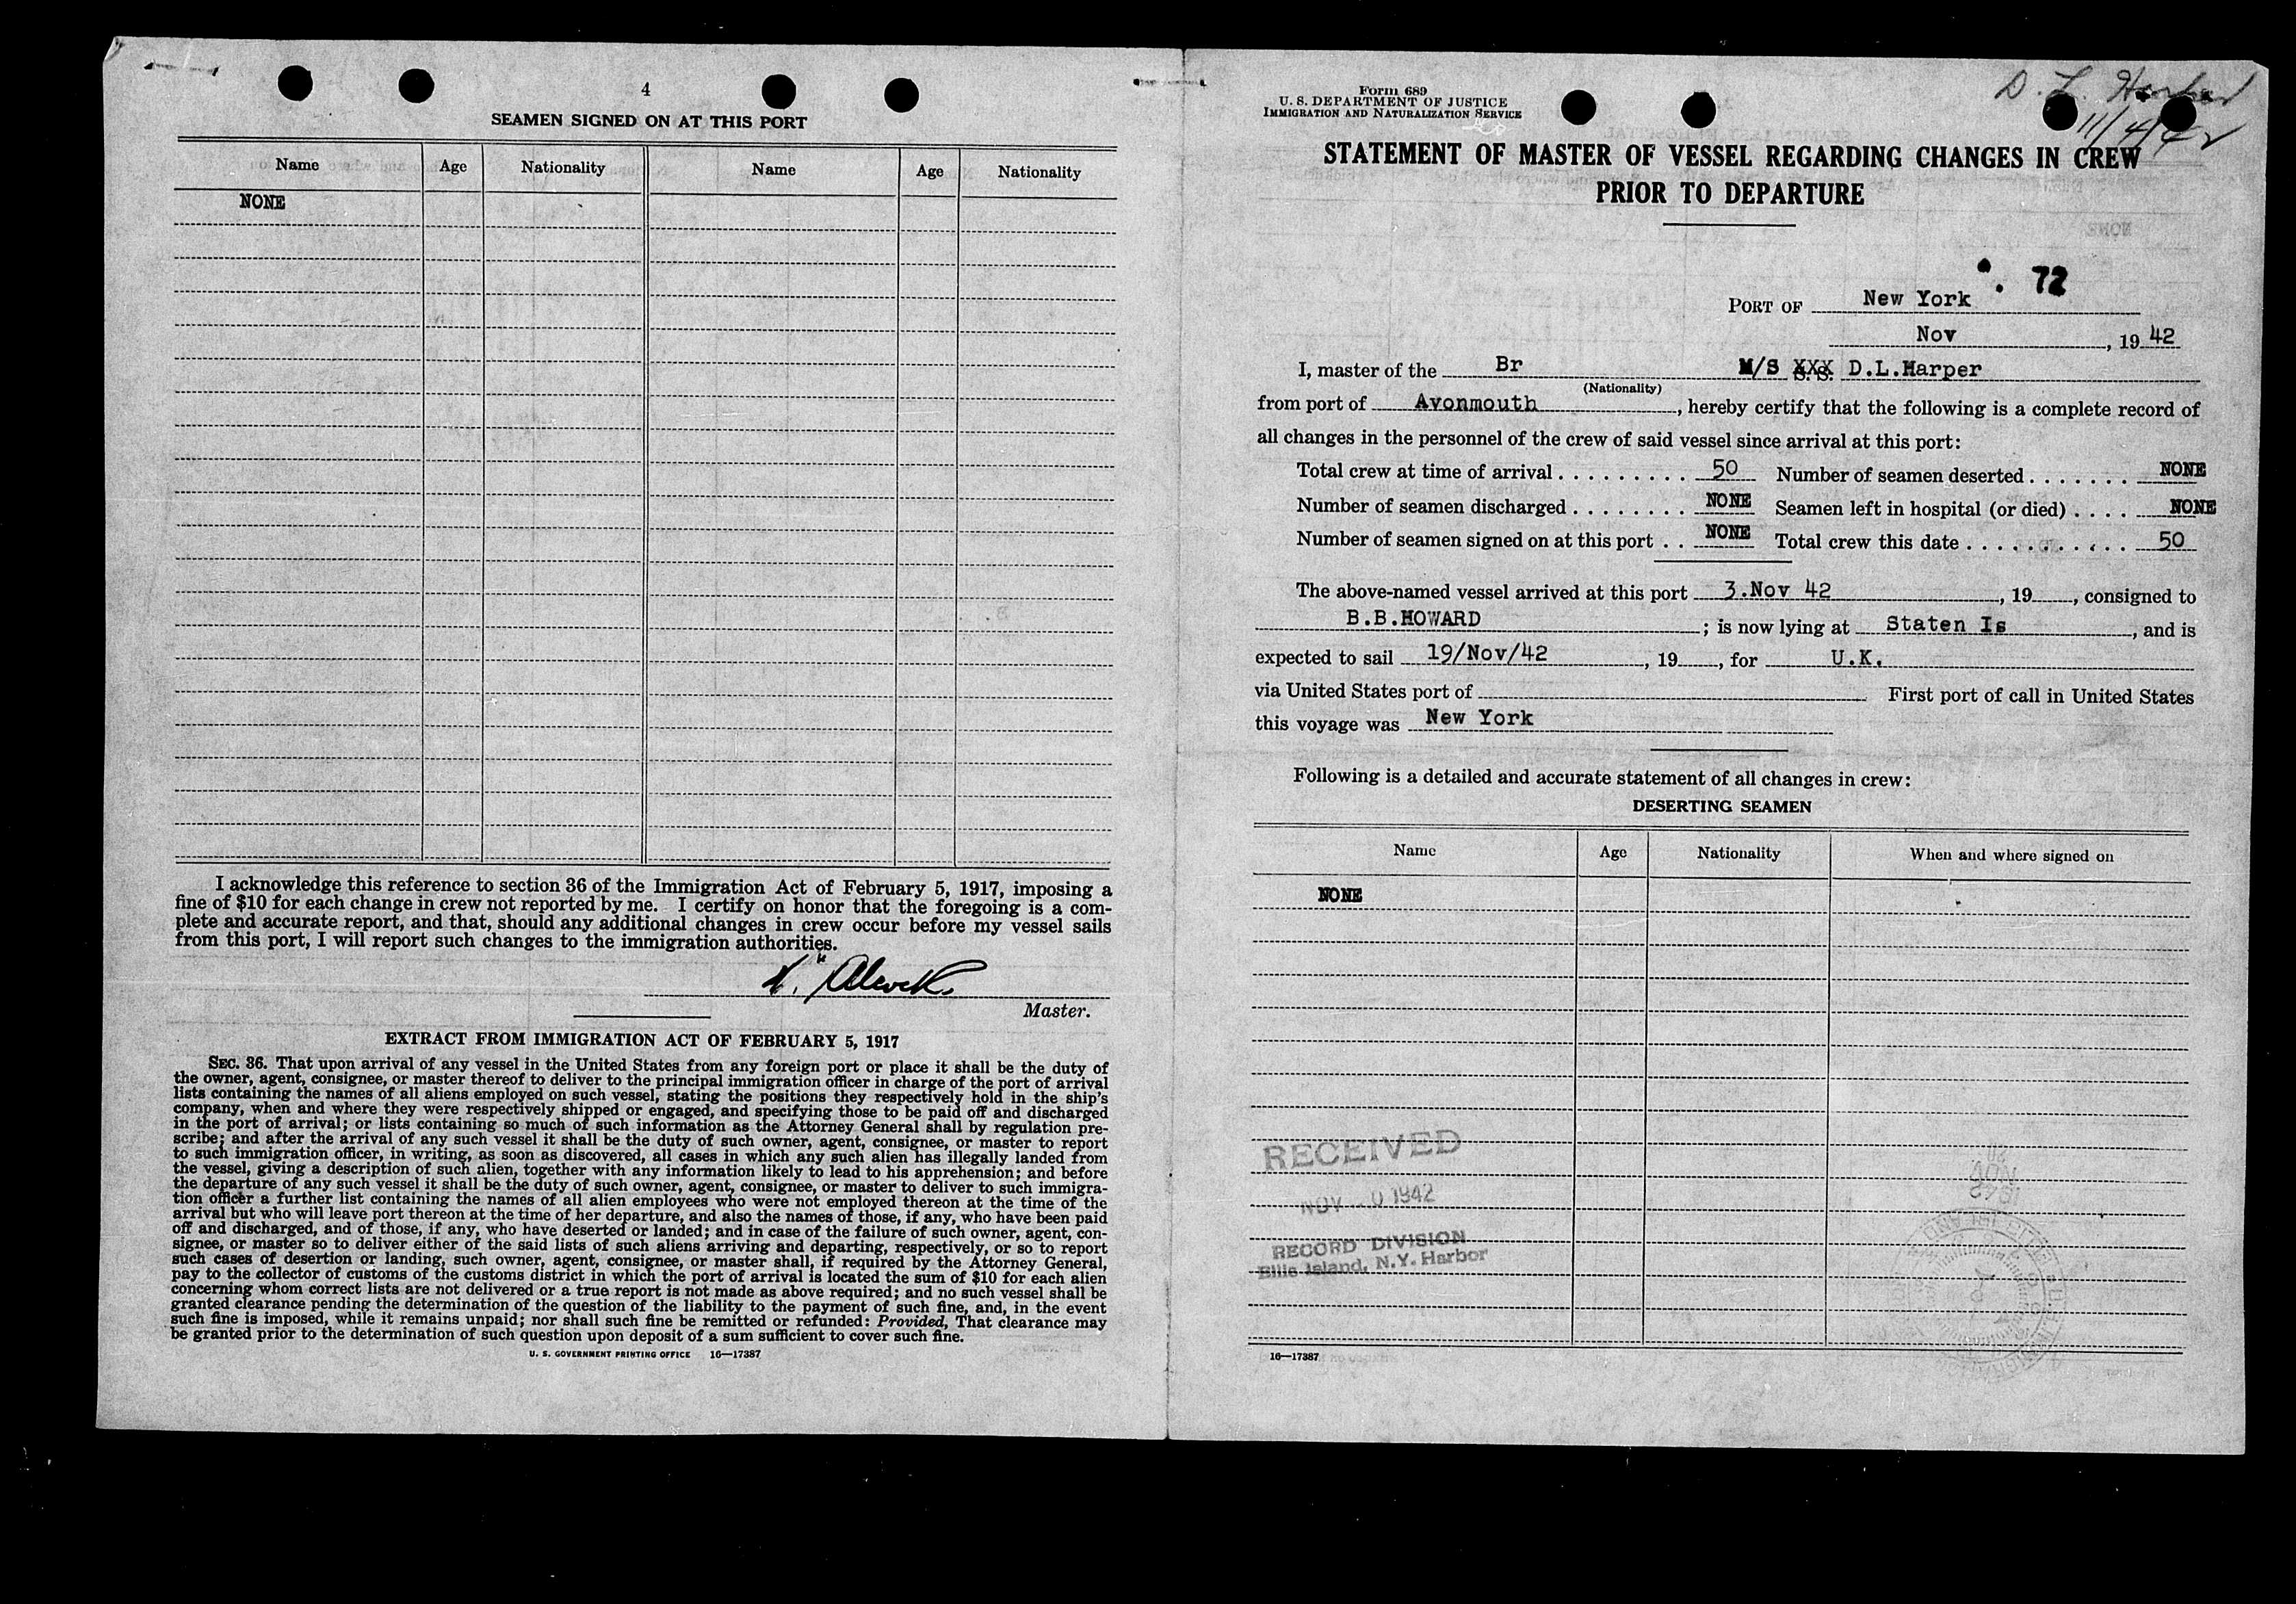 4
SEAMEN SIGNED ON AT THIS PORT
Name Age Nationality Name Age Nationality
NONE
I acknowledge this reference to section 36 of the Immigration Act of February 5, 1917, imposing a
fine of $10 for each change in crew not reported by me. I certify on honor that the foregoing is a com-
plete and accurate report, and that, should any additional changes in crew occur before my vessel sails
from this port, I will report such changes to the immigration authorities.
Master.
EXTRACT FROM IMMIGRATION ACT OF FEBRUARY 5, 1917
SEC. 36. That upon arrival of any vessel in the United States from any foreign port or place it shall be the duty of
the owner, agent, consignee, or master thereof to deliver to the principal immigration officer in charge of the port of arrival
lists containing the names of all aliens employed on such vessel, stating the positions they respectively hold in the ship's
company, when and where they were respectively shipped or engaged, and specifying those to be paid off and discharged
in the port of arrival; or lists containing so much of such information as the Attorney General shall by regulation pre-
scribe; and after the arrival of any such vessel it shall be the duty of such owner, agent, consignee, or master to report
to such immigration officer, in writing, as soon as discovered, all cases in which any such alien has illegally landed from
the vessel, giving a description of such alien, together with any information likely to lead to his apprehension; and before
the departure of any such vessel it shall be the duty of such owner, agent, consignee, or master to deliver to such immigra-
tion officer a further list containing the names of all alien employees who were not employed thereon at the time of the
arrival but who will leave port thereon at the time of her departure, and also the names of those, if any, who have been paid
off and discharged, and of those, if any, who have deserted or landed; and in case of the failure of such owner, agent, con-
signee, or master so to deliver either of the said lists of such aliens arriving and departing, respectively, or so to report
such cases of desertion or landing, such owner, agent, consignee, or master shall, if required by the Attorney General,
pay to the collector of customs of the customs district in which the port of arrival is located the sum of $10 for each alien
concerning whom correct lists are not delivered or a true report is not made as above required; and no such vessel shall be
granted clearance pending the determination of the question of the liability to the payment of such fine, and, in the event
such fine is imposed, while it remains unpaid; nor shall such fine be remitted or refunded: Provided, That clearance may
be granted prior to the determination of such question upon deposit of a sum sufficient to cover such fine.
U. S. GOVERNMENT PRINTING OFFICE 16—17387
Form 689
U. S. DEPARTMENT OF JUSTICE
IMMIGRATION AND NATURALIZATION SERVICE
D. L. Harper
11/4/42
STATEMENT OF MASTER OF VESSEL REGARDING CHANGES IN CREW
PRIOR TO DEPARTURE
72
PORT OF New York
Nov, 19 42
I, master of the Br M/S XXX S. S. D.L.Harper
(Nationality)
from port of Avonmouth, hereby certify that the following is a complete record of
all changes in the personnel of the crew of said vessel since arrival at this port:
Total crew at time of arrival . . . . . . . . . 50 Number of seamen deserted . . . . . . . NONE
Number of seamen discharged . . . . . . . . NONE Seamen left in hospital (or died) . . . . NONE
Number of seamen signed on at this port . . NONE Total crew this date . . . . . . . . . . . 50
The above-named vessel arrived at this port 3.Nov 42, 19, consigned to
B.B.HOWARD; is now lying at Staten Is, and is
expected to sail 19/Nov/42, 19, for U.K.
via United States port of First port of call in United States
this voyage was New York
Following is a detailed and accurate statement of all changes in crew:
DESERTING SEAMEN
Name Age Nationality When and where signed on
NONE
RECEIVED
NOV 0 1942
RECORD DIVISION
Ellis Island, N.Y. Harbor
16—17387